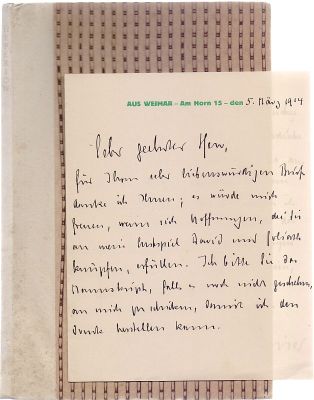 AUS WEIMAR – Am Horn 15 – den 5. März 1914
Sehr geehrter Herr,
für Ihren sehr liebenswürdigen Brief
danke ich Ihnen; es würde mich
freuen, wenn sich Hoffnungen, die Sie
an mein Lustspiel David und Goliath
knüpfen, erfüllen. Ich bitte Sie das
Manuskript, falls es noch nicht geschehen,
an mich zu schicken, damit ich den
Druck herstellen kann.